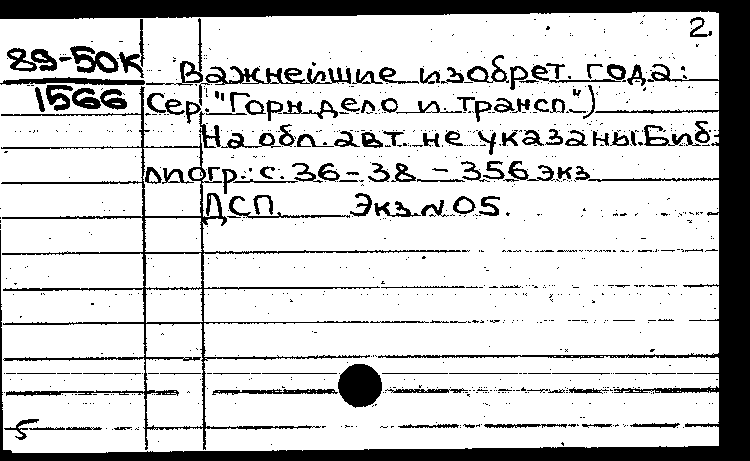 2.
89-50К
1566
Важнейшие изобрет. года:
Сер. "Горн. дело и трансп.")
На обл. авт. не указаны. Биб-
лиогр.: с. 36-38 - 356 экз.
ДСП. Экз. N 05.
5